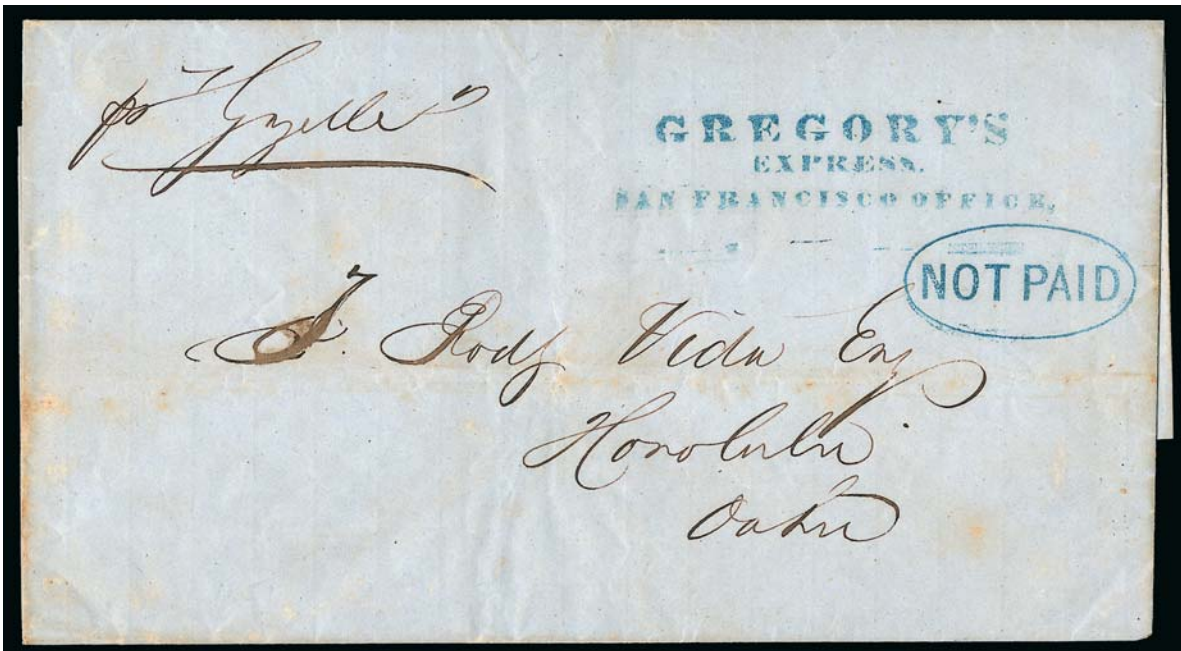 pr "Gazelle"
GREGORY'S
EXPRESS.
SAN FRANCISCO OFFICE,
NOT PAID
F. Rodg Vida Esq
Honolulu
Oahu